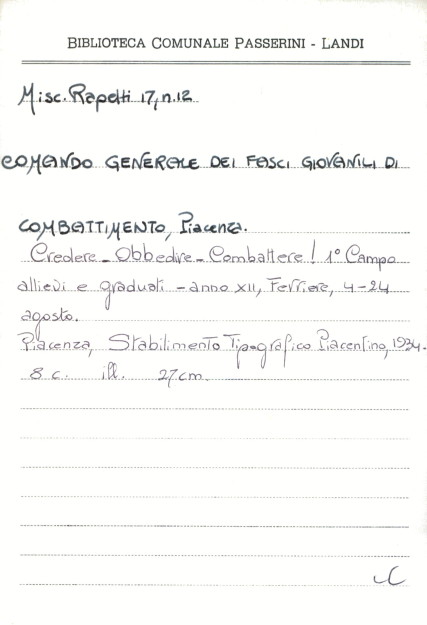 BIBLIOTECA COMUNALE PASSERINI - LANDI
Misc. Rapetti 17, n. 12
COMANDO GENERALE DEI FASCI GIOVANILI DI
COMBATTIMENTO, Piacenza.
Credere - Obbedire - Combattere! 1° Campo
allievi e graduati - anno XII, Ferriere, 4-24
agosto.
Piacenza, Stabilimento Tipografico Piacentino, 1934.
8 c. ill. 27 cm.